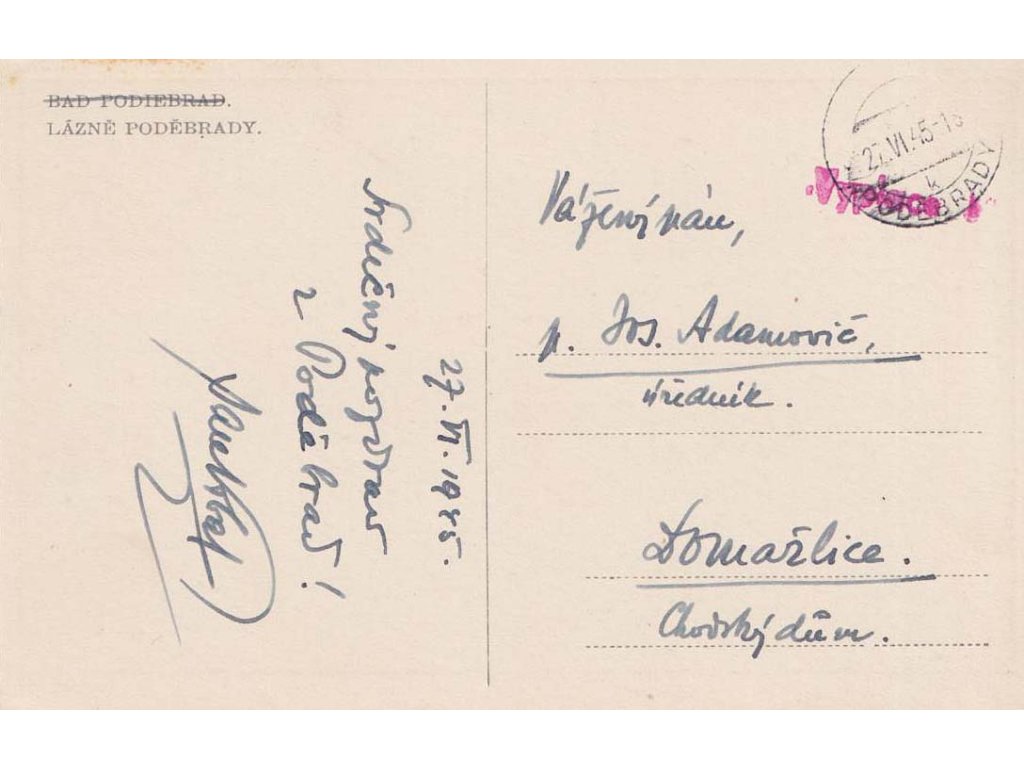 BAD PODIEBRAD.
LÁZNĚ PODĚBRADY.
27.VI.1945.
Srdečný pozdrav
z Poděbrad!
27.VI.45-18
k
PODĚBRADY
Vážený pán,
p. Jos. Adamovič,
úředník.
Domažlice.
Chodský dům.